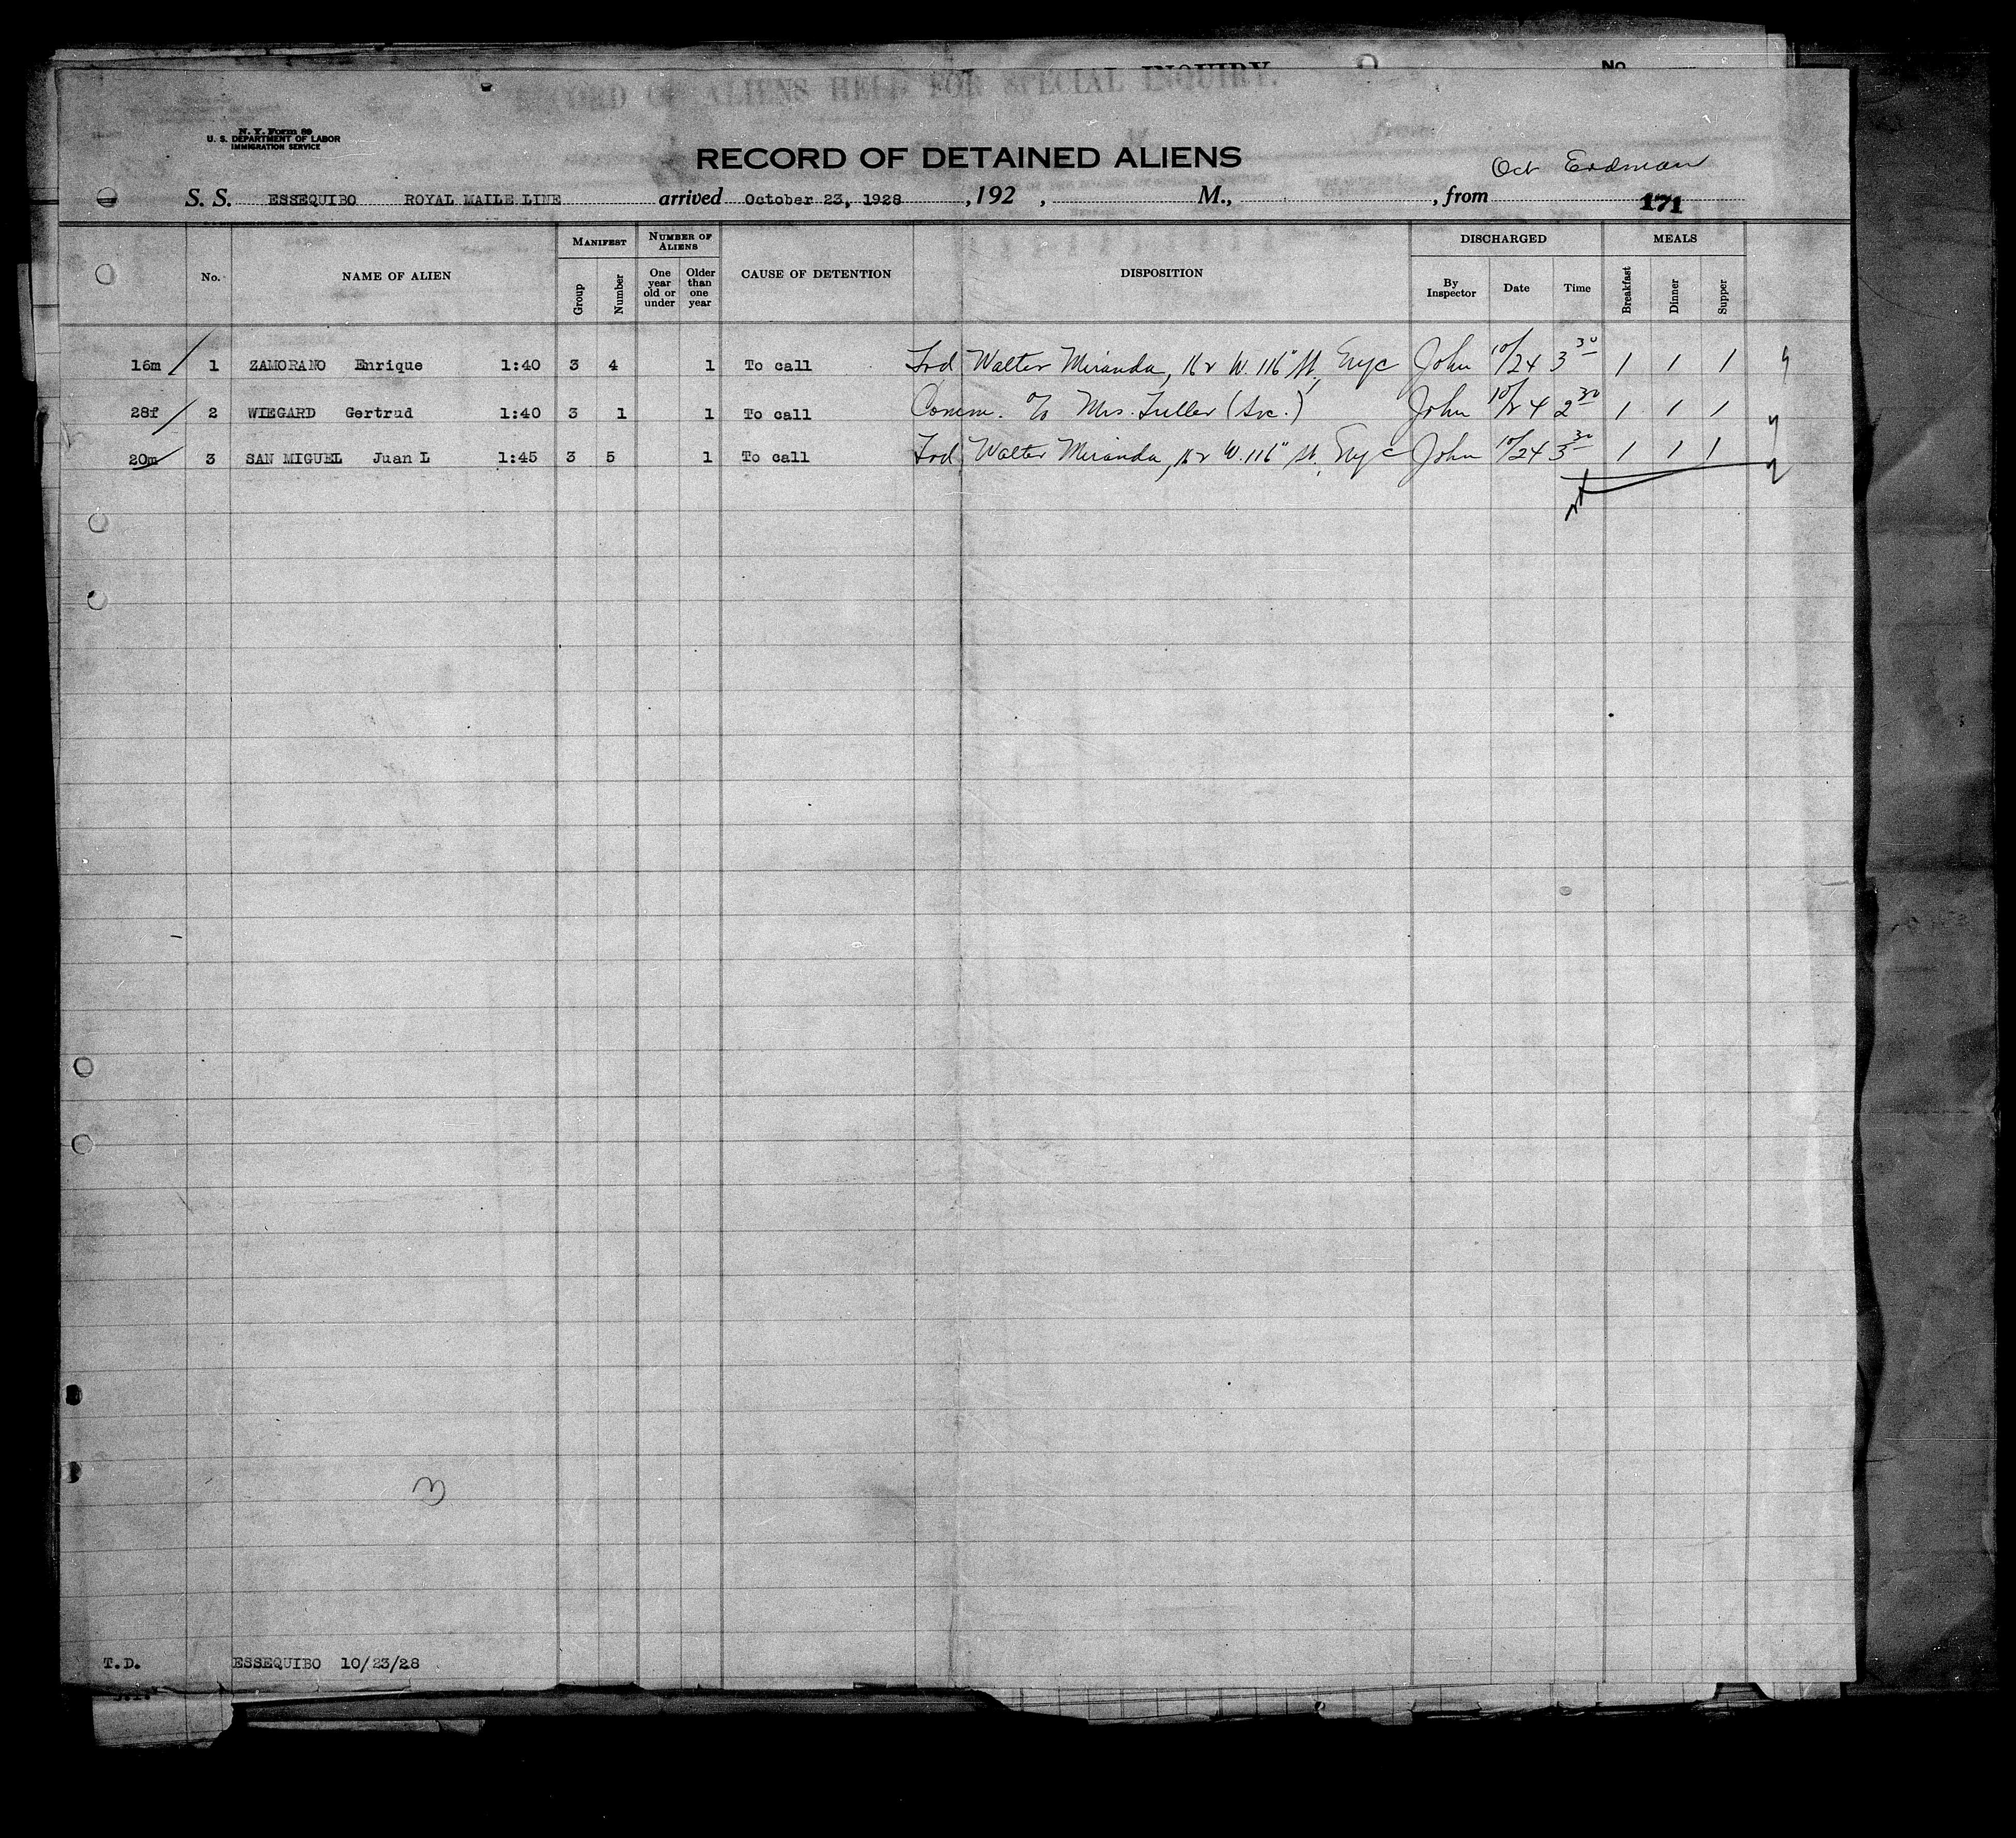 RECORD OF ALIENS HELD FOR SPECIAL INQUIRY.
No.
N. Y. Form 89
U. S. DEPARTMENT OF LABOR
IMMIGRATION SERVICE
RECORD OF DETAINED ALIENS
Oct Erdman
S. S. ESSEQUIBO ROYAL MAILE LINE arrived October 23, 1928 , 192 , M., , from
171
No. NAME OF ALIEN MANIFEST Group Number NUMBER OF ALIENS One year old or under Older than one year CAUSE OF DETENTION DISPOSITION DISCHARGED By Inspector Date Time MEALS Breakfast Dinner Supper
16m 1 ZAMORANO Enrique 1:40 3 4 1 To call Frd Walter Miranda, 162 W. 116" St, NYC John 10/24 3 30 1 1 1
28f 2 WIEGARD Gertrud 1:40 3 1 1 To call Comm. c/o Mrs. Fuller (Soc.) John 10/24 2 30 1 1 1
20m 3 SAN MIGUEL Juan L 1:45 3 5 1 To call Frd Walter Miranda, 162 W. 116" St, NYC John 10/24 3 30 1 1 1
T.D. ESSEQUIBO 10/23/28